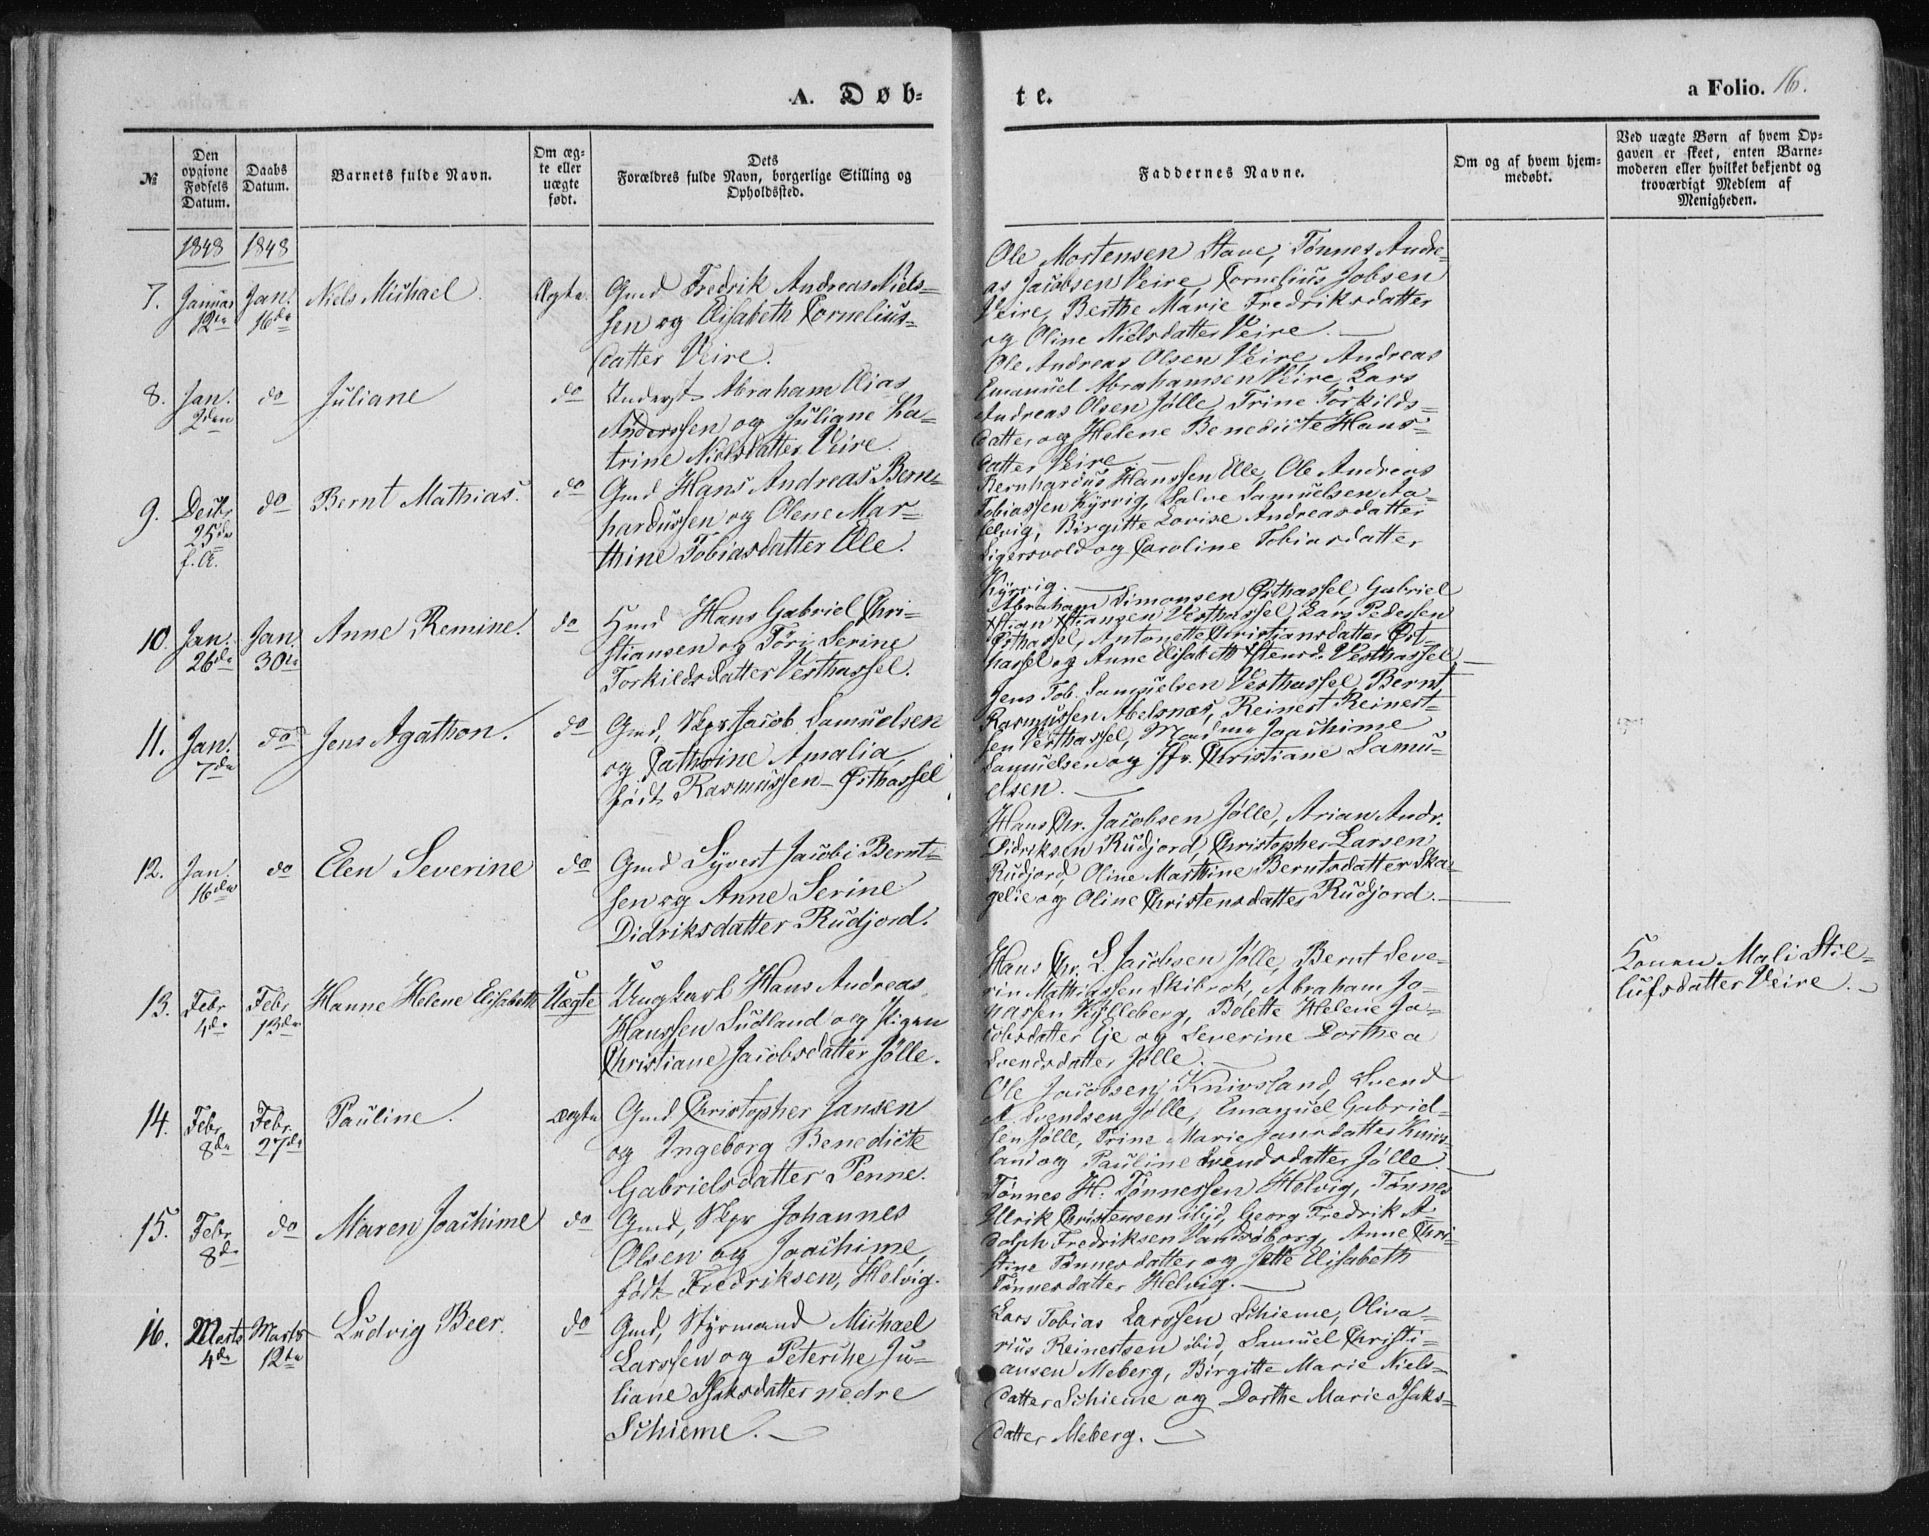 A. Døb-
te.
a Folio. 16.
No
Den opgivne Fødsels Datum.
Daabs Datum.
Barnets fulde Navn.
Om æg-
te eller
uægte
født.
Dets
Forældres fulde Navn, borgerlige Stilling og
Opholdssted.
Faddernes Navne.
Om og af hvem hjem-
medøbt.
Ved uægte Børn af hvem Op-
gaven er skeet, enten Barne-
moderen eller hvilket bekjendt og
troværdigt Medlem af
Menigheden.
1848 1848
7. Januar 12te Jan. 16de Niels Michael. Ægte.
Gmd Fredrik Andreas Niels-
sen og Elisabeth Cornelius-
datter Veire.
Ole Mortensen Stave, Tønnes Andre-
as Jacobsen Veire, Cornelius Jobsen
Veire, Berthe Marie Fredriksdatter
og Oline Nielsdatter Veire. —
8. Jan. 2den do Juliane do
Inderst Abraham Elias
Anderssen og Juliane Ka-
trine Nielsdatter Veire.
Ole Andreas Olsen Veire, Andreas
Emanuel Abrahamsen Veire, Lars
Andreas Olsen Jølle, Trine Torkilds-
datter og Helene Benedicte Hans-
datter Veire —
9. Decbr 25de f. A. do Bernt Mathias. do
Gmd Hans Andreas Bern-
hardussen og Olene Mar-
thine Tobiasdatter Elle.
Bernhardus Hanssen Elle, Ole Andreas
Tobiassen Kyrvig, Salve Samuelsen Aa-
selvig, Birgitte Lovise Andreasdatter
Sigersvold og Caroline Tobiasdatter
Kyrvig. —
10. Jan. 26de Jan 30te Anne Remine. do
Hmd Hans Gabriel Chri-
stiansen og Tøri Serine
Torkildsdatter Vesthassel.
Abraham Simonsen Østhassel, Gabriel
Xstian Xstiansen Vesthassel, Lars Pedersen
Østhassel, Antonette Christiansdatter Øst-
hassel og Anne Elisabeth Xstensd. Vesthassel —
11. Jan. 7de do Jens Agathon. do
Gmd, Skpr Jacob Samuelsen
og Cathrine Amalia,
født Rasmussen – Østhassel
Jens Tob. Samuelsen Vesthassel, Bernt
Rasmussen Abelsnæs, Reinert Reinert-
sen Vesthassel, Madme Joachime
Samuelsen og Jfr. Christiane Samu-
elsen. —
12. Jan. 16den do Elen Severine do
Gmd Syvert Jacobi Bernt-
sen og Anne Serine
Didriksdatter Rudjord.
Hans Chr. Jacobsen Jølle, Arian Andr.
Didriksen Rudjord, Christopher Larsen
Rudjord, Oline Marthine Berntsdatter Ska-
gelie og Oline Christensdatter Rudjord. —
13. Febr 4de Febr 13de Hanne Helene Elisabeth Uægte
Ungkarl Hans Andreas
Hanssen Sudland og Pigen
Christiane Jacobsdatter Jølle.
Hans Chr. L. Jacobsen Jølle, Bernt Seve-
rin Mathiassen Skibrok, Abraham Jo-
nassen Kylleberg, Bolette Helene Ja-
cobsdatter Eje og Severine Dorthea
Svendsdatter Jølle. —
Konen Mali Stil-
lufsdatter Veire. —
14. Febr 8de Febr. 27de Pauline. Ægte
Gmd Christopher Jansen
og Ingeborg Benedicte
Gabrielsdatter Penne.
Ole Jacobsen Knivsland, Svend
A. Svendsen Jølle, Emanuel Gabriel-
sen Jølle, Trine Marie Jansdatter Knivs-
land og Pauline Svendsdatter Jølle. —
15. Febr 8de do Maren Joachime do
Gmd, Skpr Johannes
Olsen og Joachime,
født Fredriksen, Helvig.
Tønnes H. Tønnessen Helvig, Tønnes
Ulrik Christensen ibid, Georg Fredrik A-
dolph Fredriksen Landsborg, Anne Chri-
stine Tønnesdatter og Jette Elisabeth
Tønnesdatter Helvig. —
16. Marts 4de Marts 12te Ludvig Beer. do
Gmd, Styrmand Michael
Larssen og Peterche Ju-
liane Isaksdatter nedre
Schieme. —
Lars Tobias Larssen Schieme, Oliva-
rius Reinertsen ibid, Samuel Christi-
ansen Meberg, Birgitte Marie Niels-
datter Schieme og Dorthe Marie Isaks-
datter Meberg. —